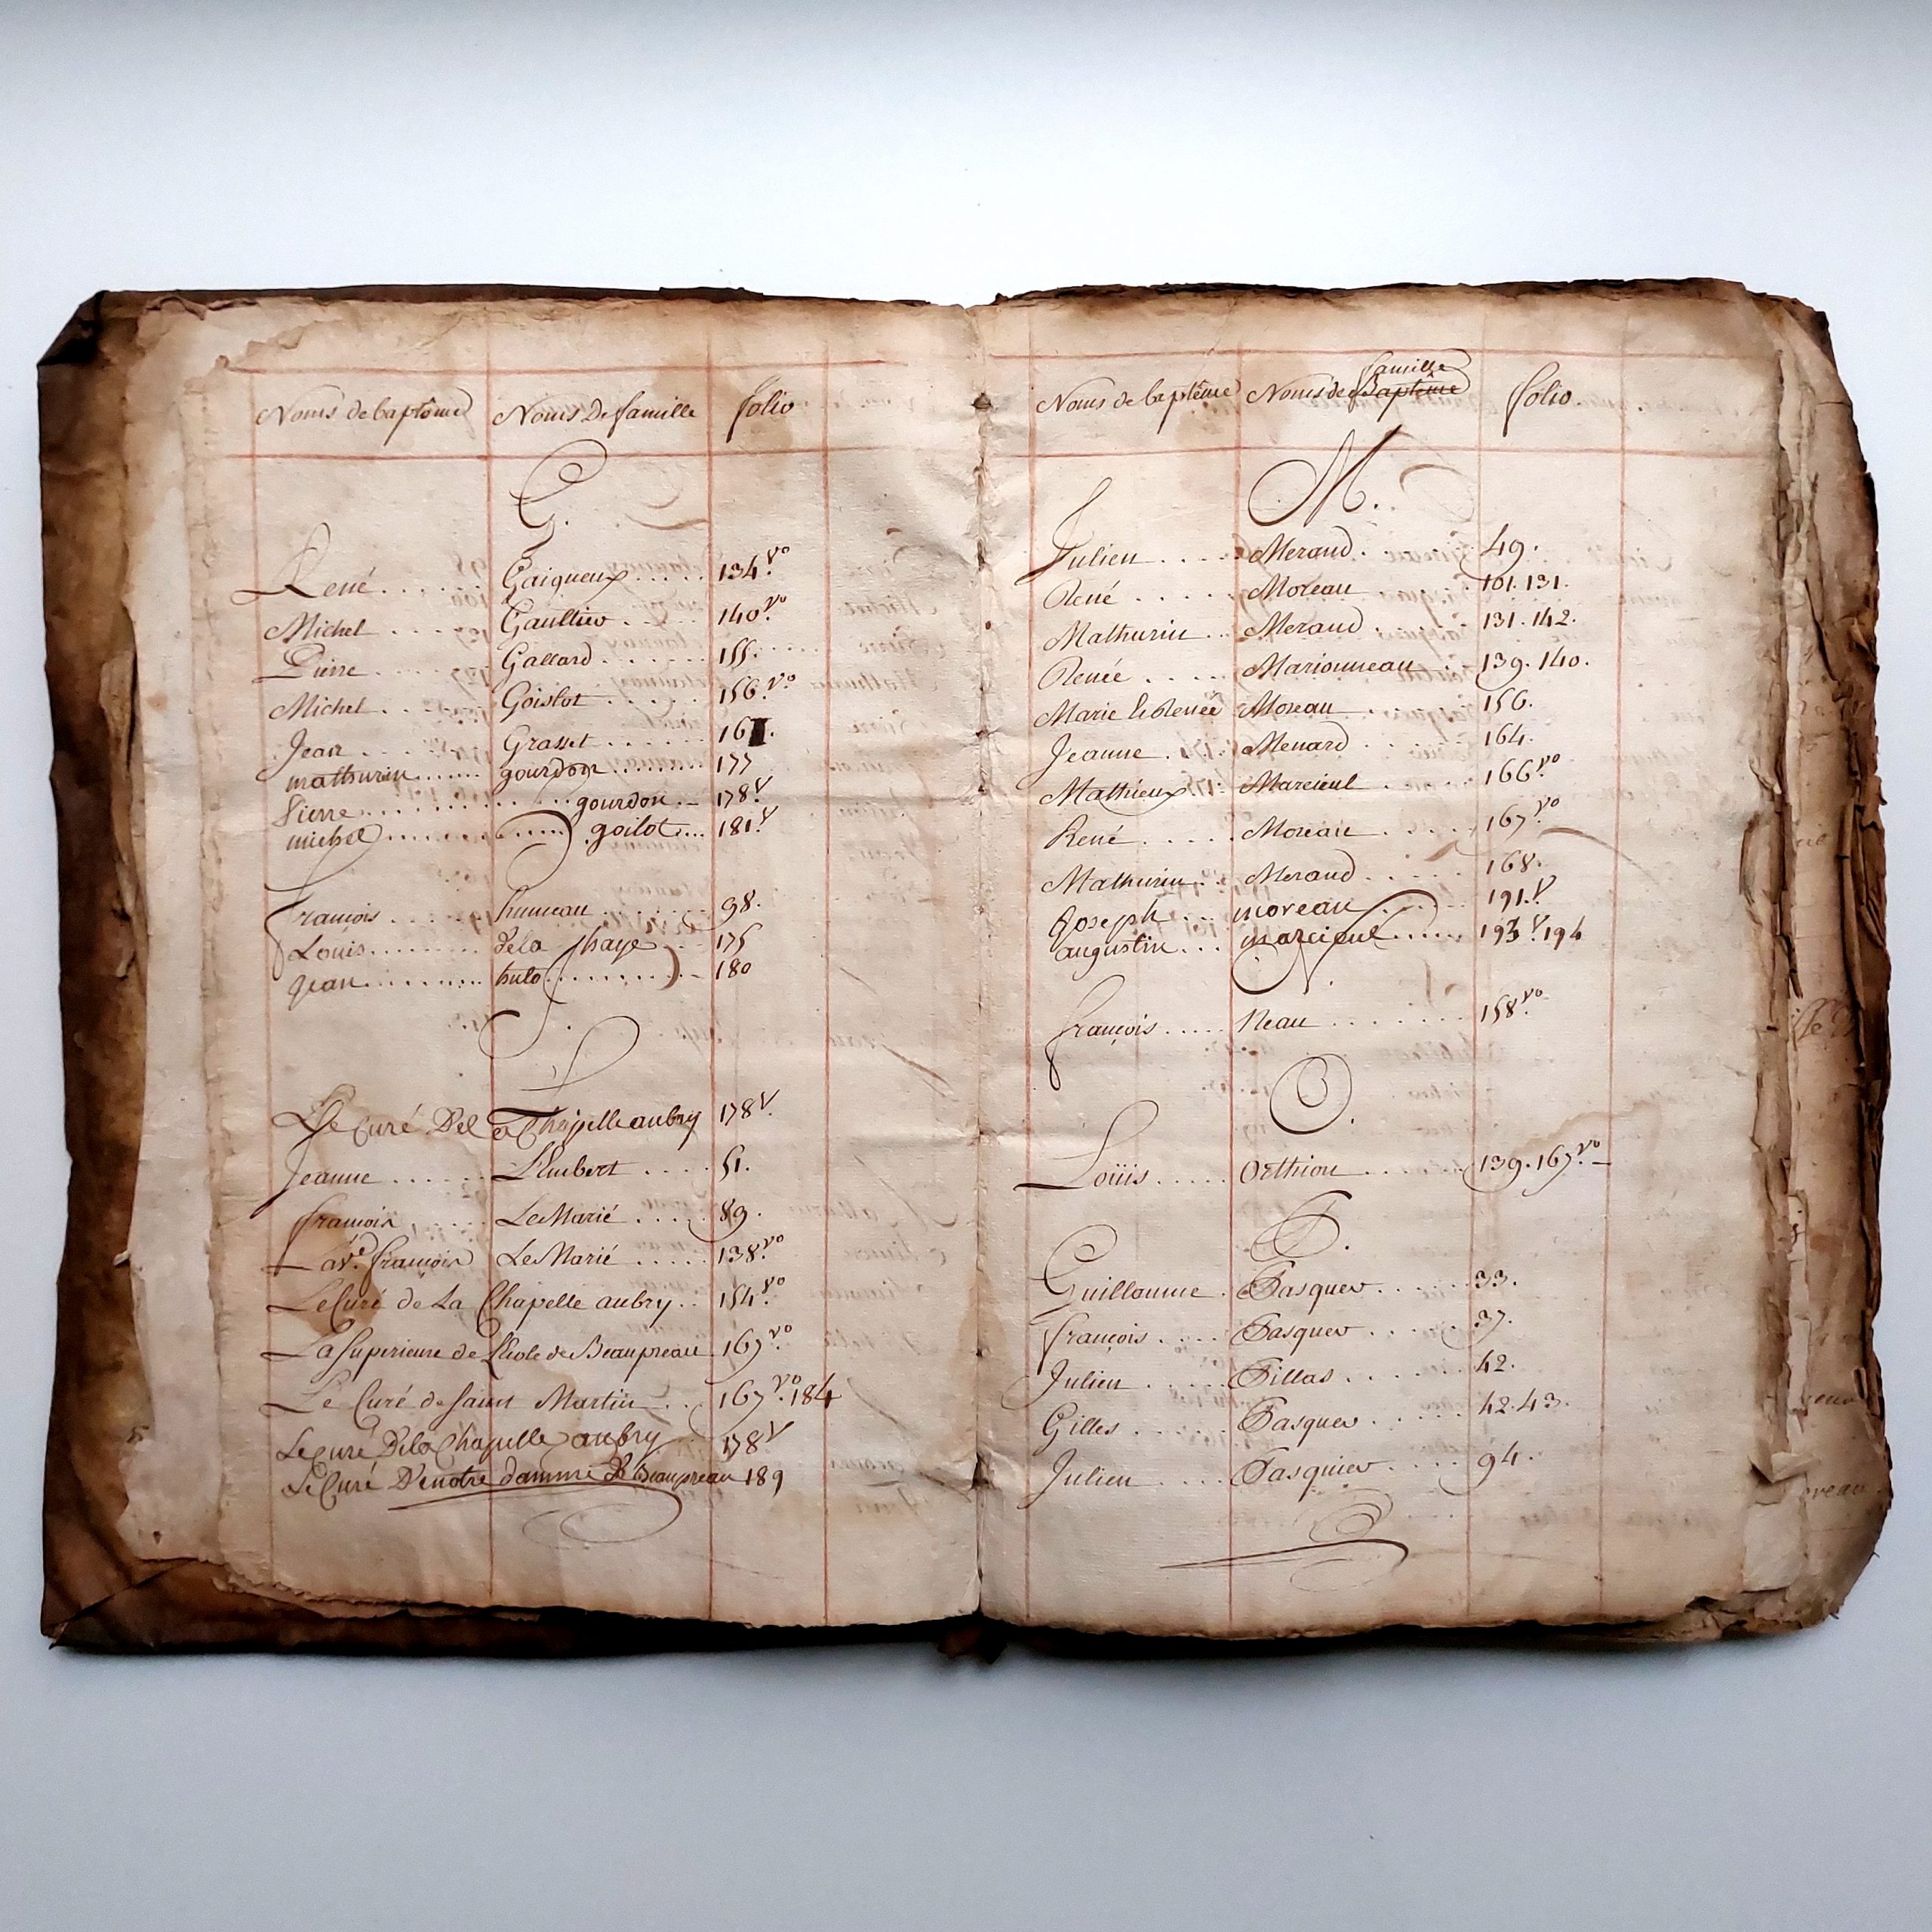 Noms de baptême Noms De famille folio
G.
René..... Gaigneux..... 134.vo
Michel.... Gaultier..... 140.vo
Pierre..... Gallard...... 155.
Michel.... Goislot...... 156.vo
Jean..... Grasset...... 16
mathurin...... gourdon....... 177
Pierre......... gourdon.. 178.v
michel........ goilot.... 181.v
françois..... huneau...... 98.
Louis....... dela haye... 175
jean........ hulo......... 180
L
Le Curé Del a Chapelle aubry 178 v.
Jeanne...... L'Embert.... 51.
françois..... Le Marié.... 89.
La ve. françois Le Marié..... 138.vo
Le Curé de La Chapelle aubry.. 154.vo
La Superieure de de Beaupreau. 167.vo
Le Curé de Saint Martin... 167.vo 184
Le curé Dela Chapelle aubry 178 v
Le Curé De notre damme De Beaupreau 189
Noms de baptême Noms de Baptême famille folio.
M.
Julien.... Meraud. 49.
René..... Moreau 101.131.
Mathurin... Meraud. 131.142.
Renée.... Marionneau.. 139.140.
Marie Moreau 156.
Jeanne. Menard 164.
Mathieu Marcieul 166.vo
René..... Moreau.... 167.vo
Mathurin... Meraud...... 168.
Joseph... moreau.... 191.v
augustin... marcieul..... 193.v 194
N.
françois..... Neau....... 158.vo
O.
Loüis..... Orthion..... 139.167.vo
P.
Guillaume. Pasquer..... 33.
françois.... Pasquer.... 37.
Julien..... Pillas...... 42.
Gilles.... Pasquer..... 42.43.
Julien.... Pasquier.... 94.